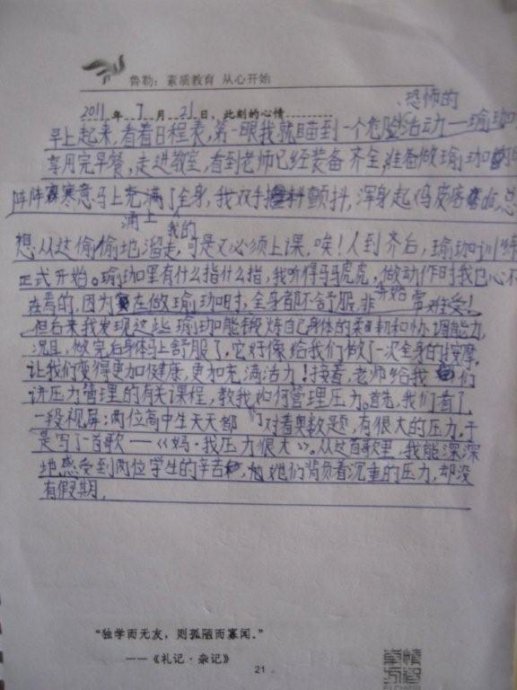 鲁勒：素质教育 从心开始
2011年7月21日，此刻的心情
恐怖的
早上起来，看着日程表，第一眼我就瞄到一个危险活动—瑜珈
享用完早餐，走进教室，看到老师已经装备齐全，准备做瑜珈
阵阵寒意马上充满了全身，我双手颤抖，浑身起鸡皮疙瘩，总
涌上 我的
想从这偷偷地溜走，可是又必须上课，唉！人到齐后，瑜珈训练
正式开始。瑜珈里有什么指什么指，我听得马马虎虎，做动作时我也心不
在焉的，因为在做瑜珈时，全身都不舒服，非常难受！
但后来我发现这些瑜珈能锻炼自己身体的柔韧和协调能力，
况且，做完后身体马上舒服了，它好像给我们做了一次全身的按摩，
让我们变得更加健康，更加充满活力！接着，老师给我们
讲压力管理的有关课程，教我如何管理压力。首先，我们看了
一段视屏：两位高中生天天都对着奥数题，有很大的压力，于
是写了首歌—《妈，我压力很大》。从这首歌里，我能深深
地感受到两位学生的辛苦，她们背负着沉重的压力，却没
有假期。
“独学而无友，则孤陋而寡闻。”
——《礼记·杂记》
21